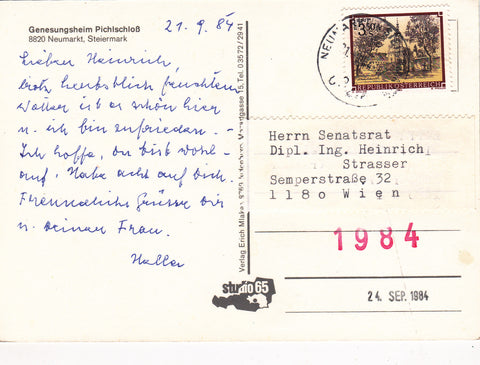 Genesungsheim Pichlschloß
8820 Neumarkt, Steiermark
21.9.84
Lieber Heinrich,
trotz herbstlich feuchtem
Wetter ist es schön hier
u. ich bin zufrieden. -
Ich hoffe, du bist wohl-
auf. Habe acht auf Dich.
Freundliche Grüsse Dir
u. Deiner Frau.
Haller
Verlag Erich Mlakar, 8753 Weyergasse 15, Tel. 03572/2941
studio 65
NEUMARKT
REPUBLIK ÖSTERREICH
Herrn Senatsrat
Dipl. Ing. Heinrich
Strasser
Semperstraße 32
1180 Wien
1984
24. SEP. 1984